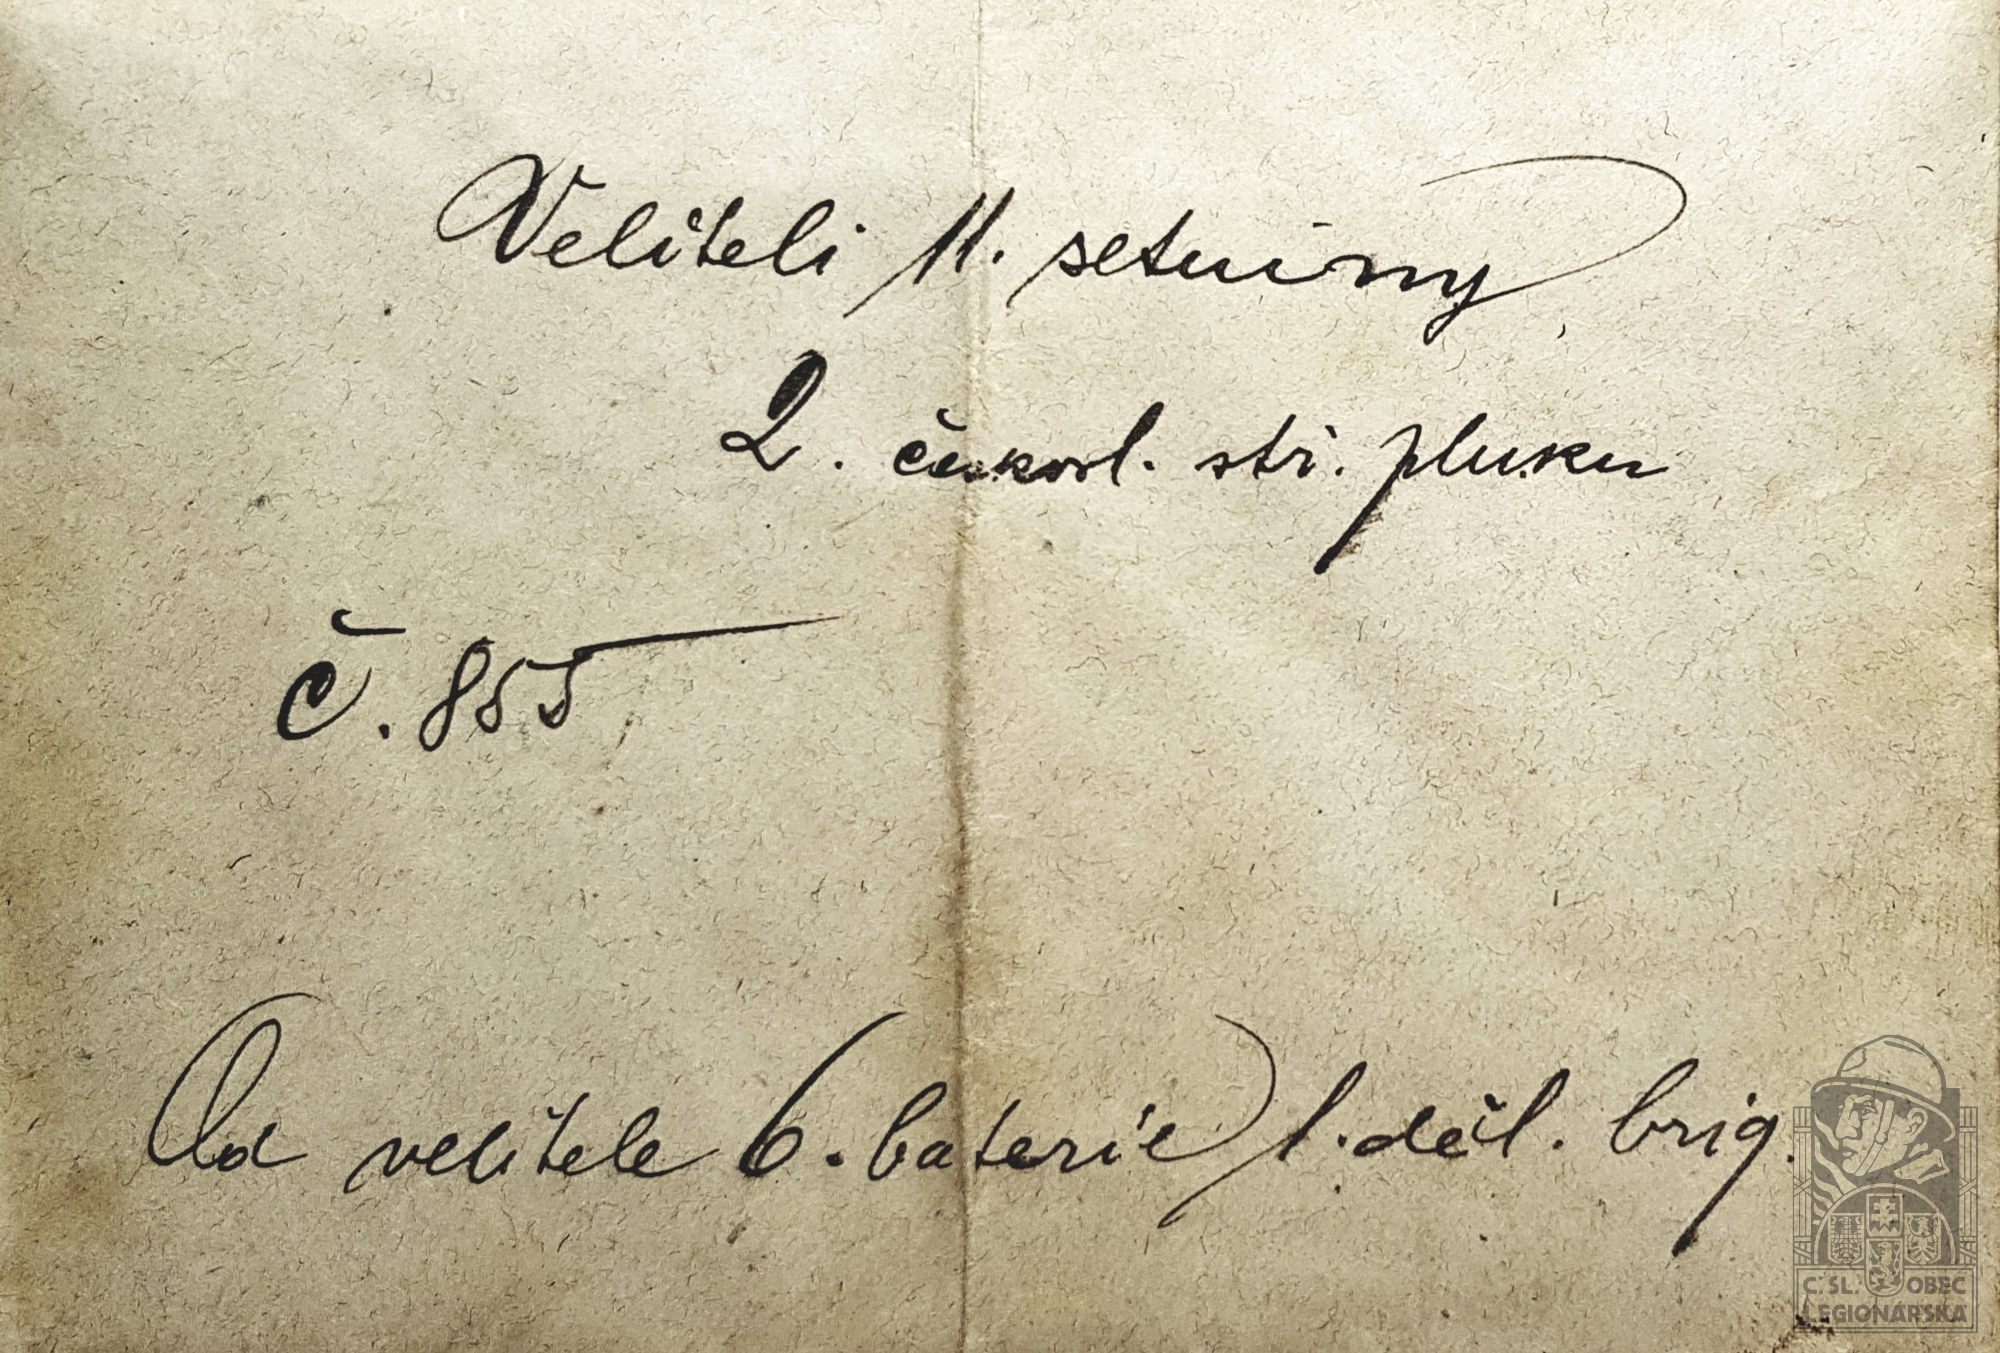 Veliteli 11. setniny
2. českosl. stř. pluku
Č. 855
Od velitele 6. baterie 1. děl. brig.
Č. SL. OBEC
LEGIONÁŘSKÁ